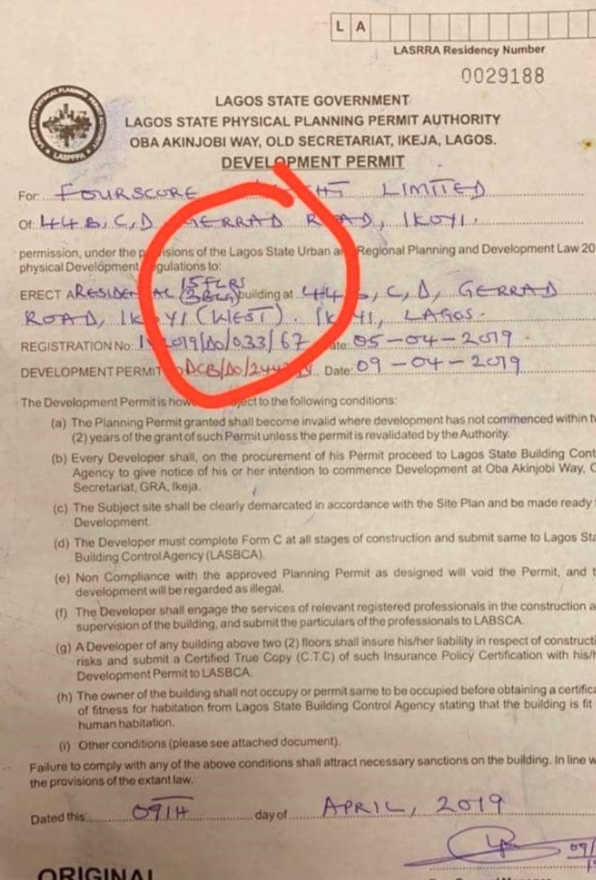 L A
LASRRA Residency Number
0029188
LAGOS STATE GOVERNMENT
LAGOS STATE PHYSICAL PLANNING PERMIT AUTHORITY
OBA AKINJOBI WAY, OLD SECRETARIAT, IKEJA, LAGOS.
LASPPPA
DEVELOPMENT PERMIT
For: FOURSCORE LIMITED
Of 44B, C, D GERRAD ROAD, IKOYI.
permission, under the provisions of the Lagos State Urban Regional Planning and Development Law 20
physical Development Regulations to:
15 FLRS
ERECT A RESIDENTIAL (3BLG) building at 44B, C, D, GERRAD
ROAD, IKOYI (WEST). IKOYI, LAGOS.
REGISTRATION No: 2019/DO/033/67 Date: 05-04-2019
DEVELOPMENT PERMIT DCB/DO/ Date: 09-04-2019
The Development Permit is however subject to the following conditions:
(a) The Planning Permit granted shall become invalid where development has not commenced within
(2) years of the grant of such Permit unless the permit is revalidated by the Authority.
(b) Every Developer shall, on the procurement of his Permit proceed to Lagos State Building
Agency to give notice of his or her intention to commence Development at Oba Akinjobi Way,
Secretariat, GRA, Ikeja.
(c) The Subject site shall be clearly demarcated in accordance with the Site Plan and be made ready
Development.
(d) The Developer must complete Form C at all stages of construction and submit same to Lagos
Building Control Agency (LASBCA).
(e) Non Compliance with the approved Planning Permit as designed will void the Permit, and
development will be regarded as illegal.
(f) The Developer shall engage the services of relevant registered professionals in the construction
supervision of the building, and submit the particulars of the professionals to LABSCA.
(g) A Developer of any building above two (2) floors shall insure his/her liability in respect of
risks and submit a Certified True Copy (C.T.C) of such Insurance Policy Certification with
Development Permit to LASBCA.
(h) The owner of the building shall not occupy or permit same to be occupied before obtaining a
of fitness for habitation from Lagos State Building Control Agency stating that the building is fit
human habitation.
(i) Other conditions (please see attached document).
Failure to comply with any of the above conditions shall attract necessary sanctions on the building. In line
the provisions of the extant law.
Dated this 09TH day of APRIL, 2019
09/
ORIGINAL